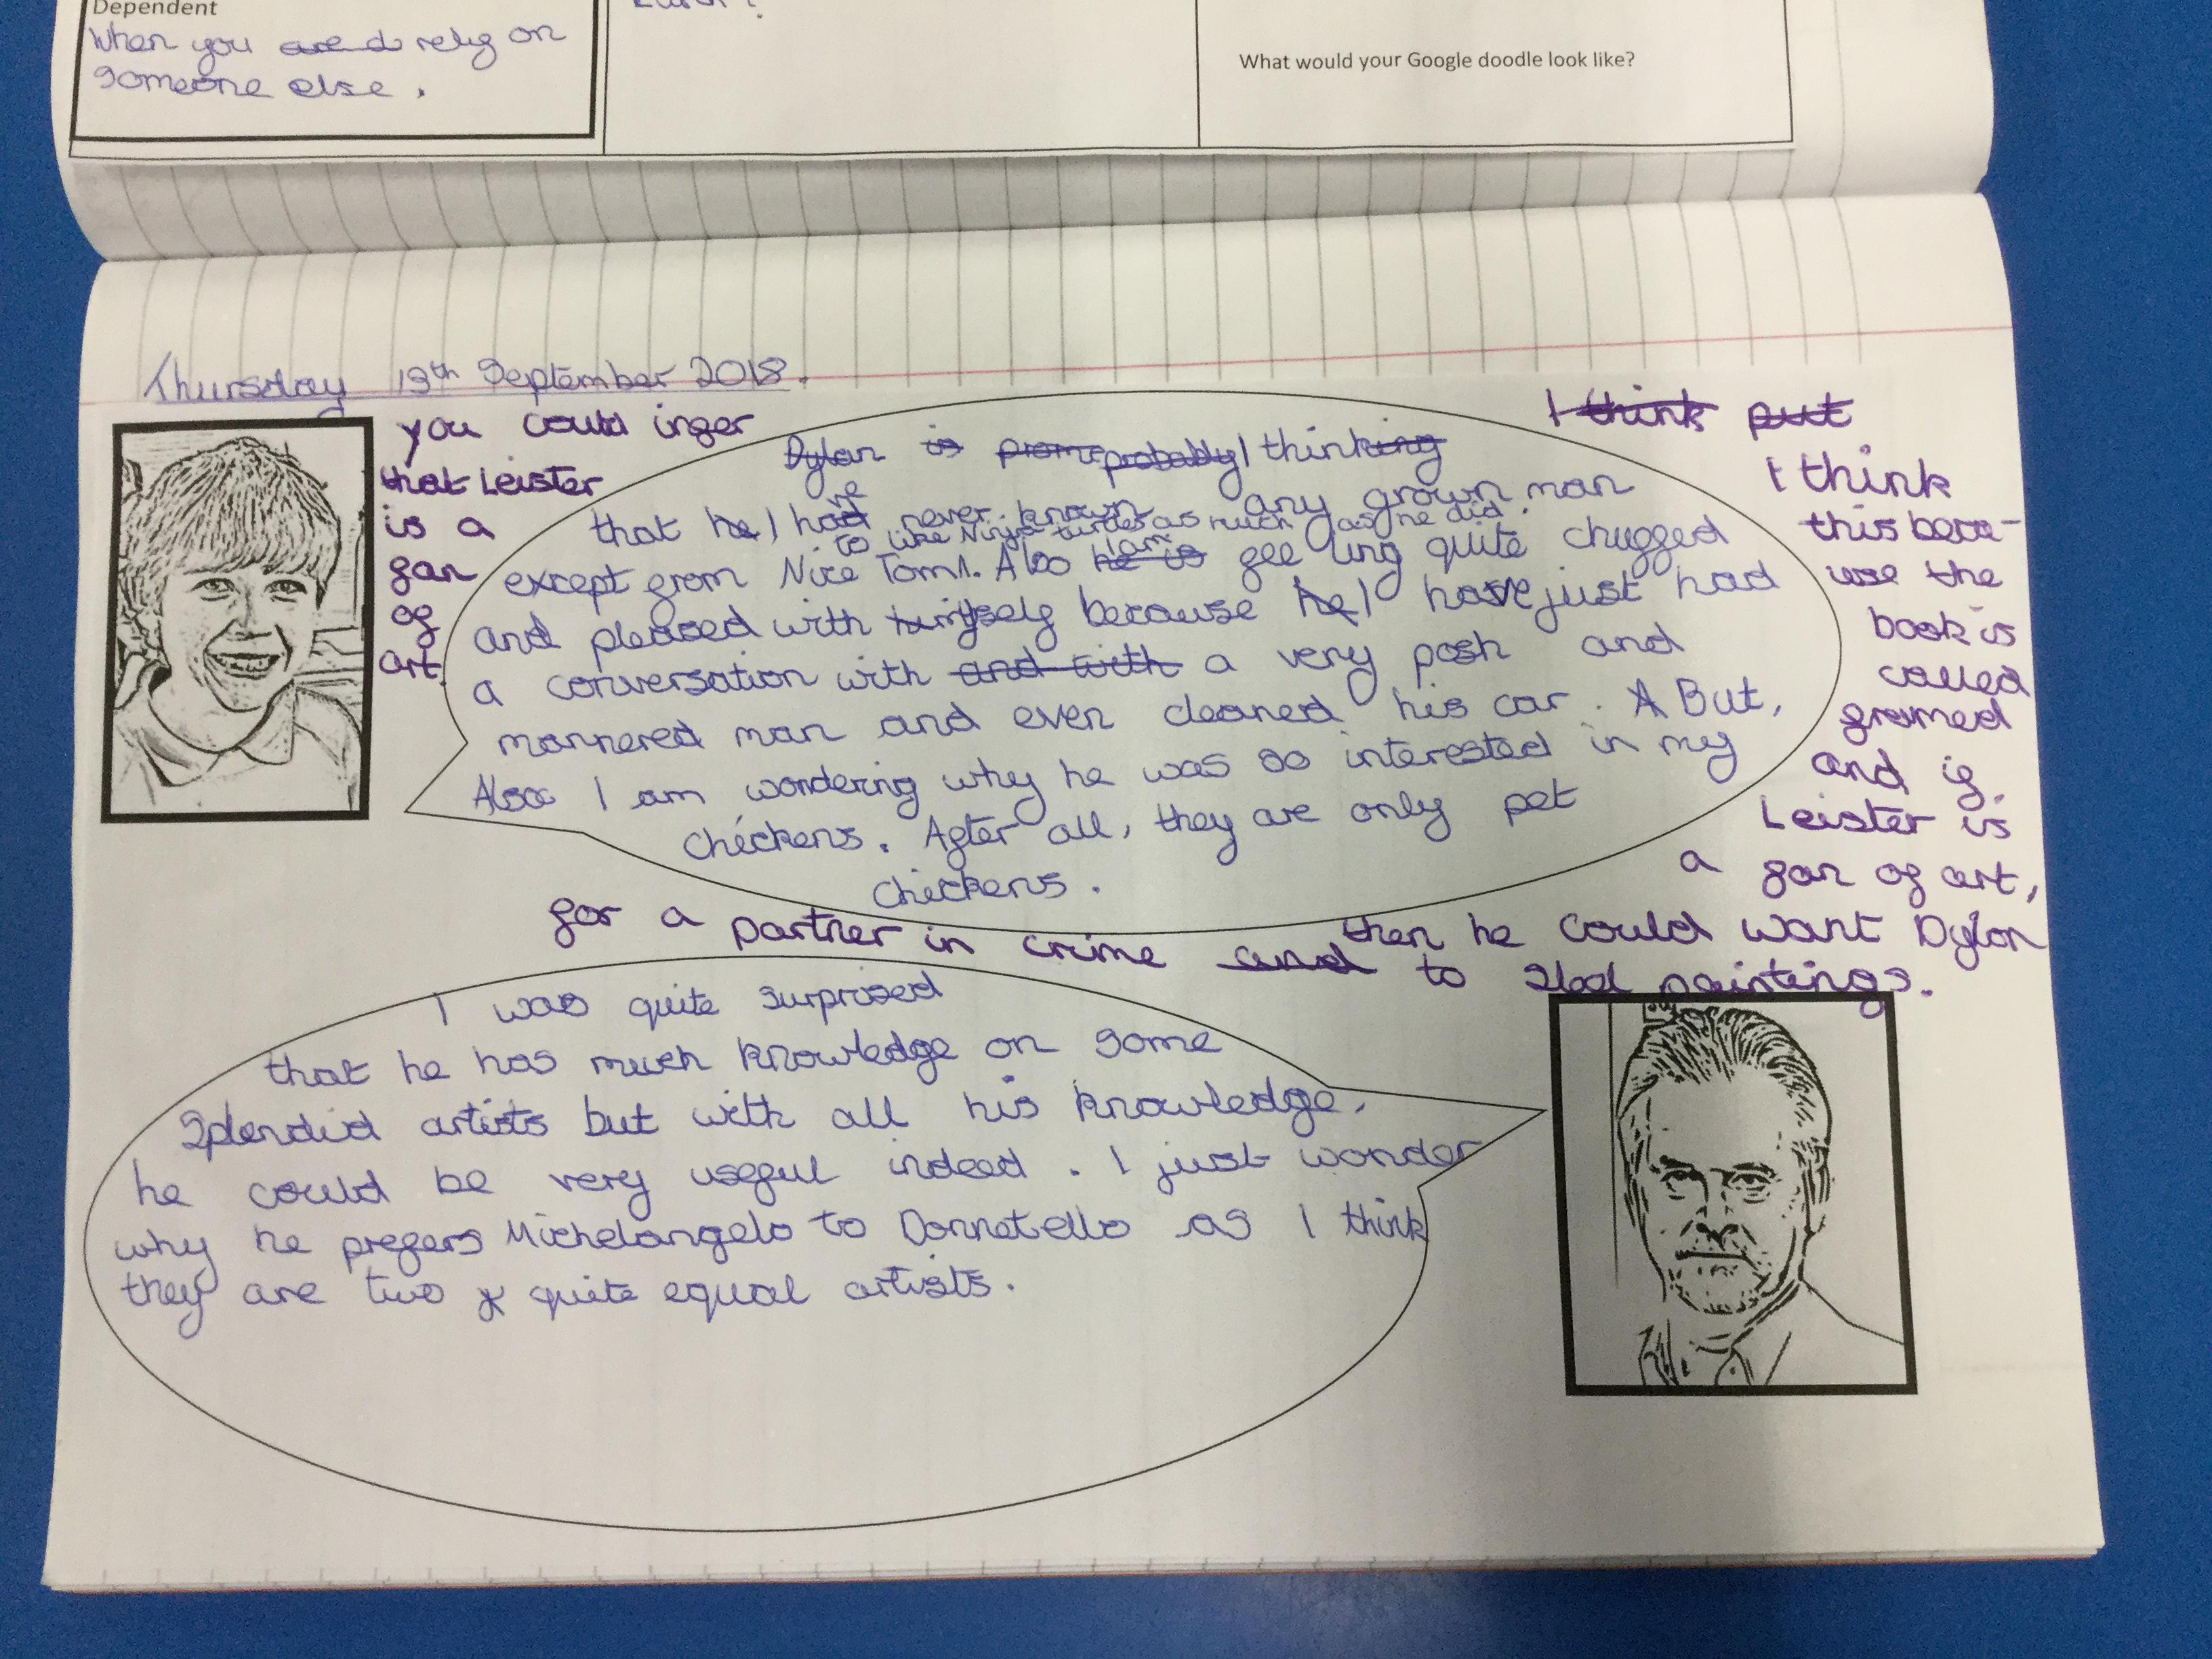 Dependent
When you are d rely on
someone else.
What would your Google doodle look like?
Thursday 19th September 2018.
you could infer
that Leister
is a
fan
of
art.
Dylan is probably I thinking
that he I have never known any grown man
to like Ninja turtles as much as he did.
except from Nice Tom. Also he is I am feeling quite chugged
and pleased with myself because he I have just had
a conversation with and with a very posh and
mannered man and even cleaned his car. A But,
Also I am wondering why he was so interested in my
chickens. After all, they are only pet
chickens.
I think put
I think
this beca-
use the
book is
called
framed
and if
Leister is
a fan of art,
then he could want Dylan
for a partner in crime and to steal paintings.
I was quite surprised
that he has much knowledge on some
splendid artists but with all his knowledge,
he could be very useful indeed. I just wonder
why he prefers Michelangelo to Donnatello as I think
they are two quite equal artists.